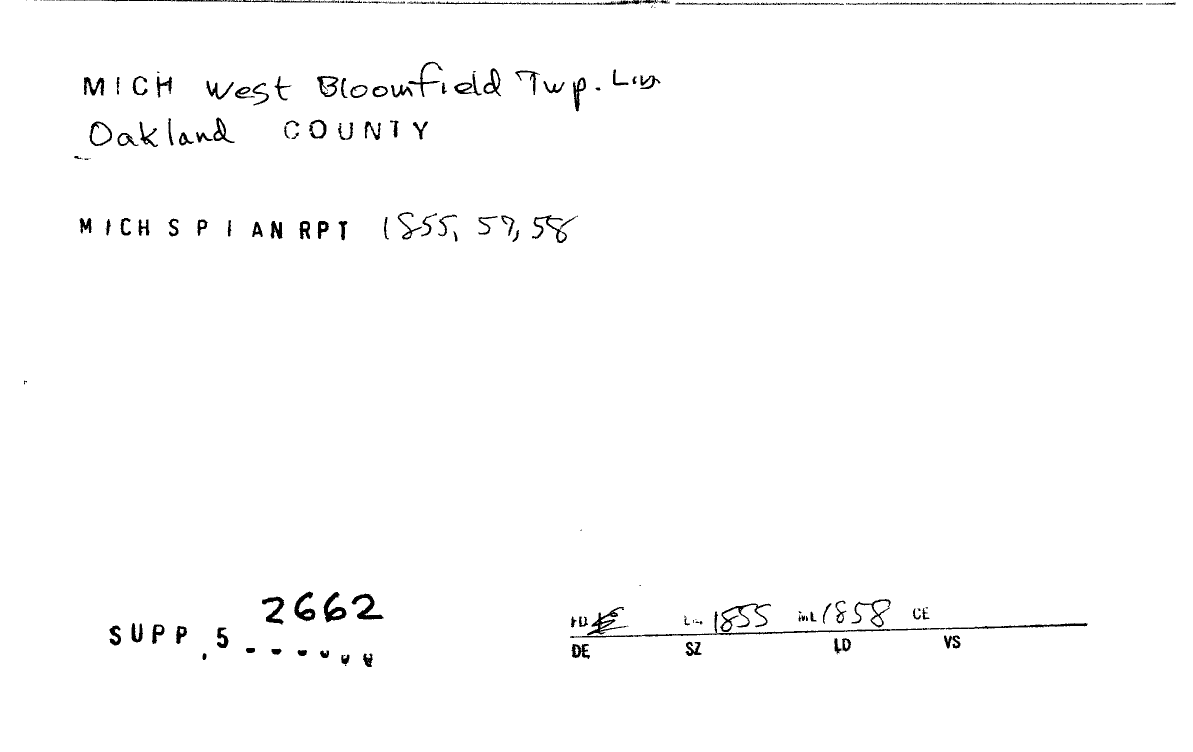 MICH West Bloomfield Twp. Lib
Oakland COUNTY
MICH SP IAN RPT 1855, 57, 58
2662
SUPP. 5
1855 1858 CE
DE SZ LD VS